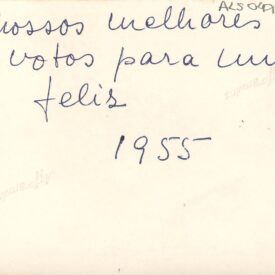 nossos melhores
votos para um
feliz
1955